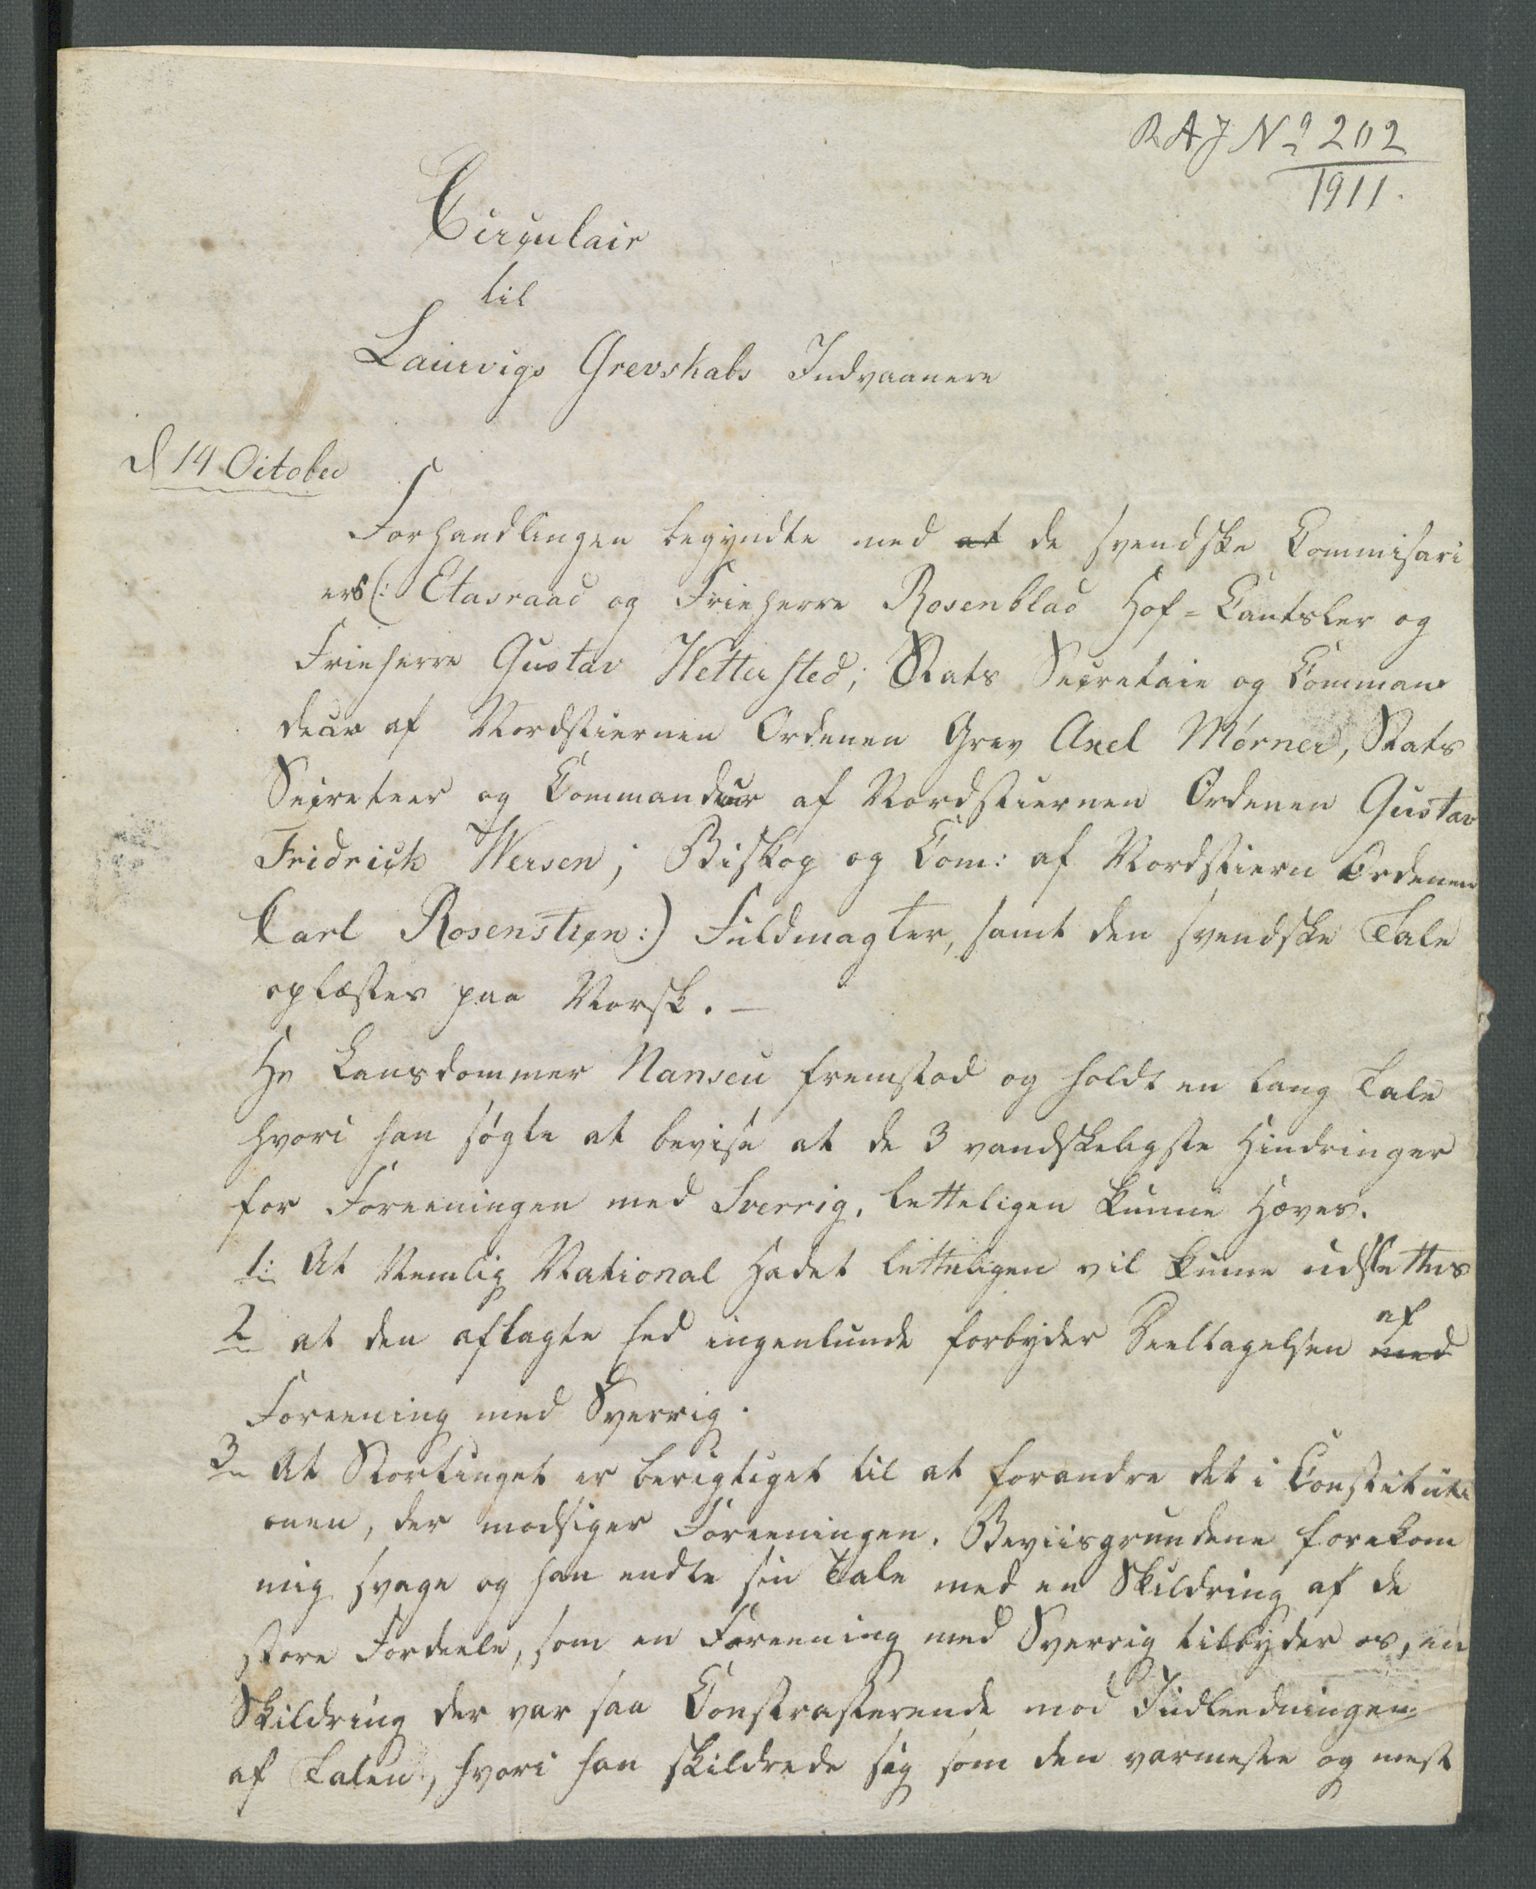 RAJ No 202
1911.
Circulair
til
Laurvigs Grevskabs Indvaanere
d 14 October
Forhandlingen begyndte med at de svendske Commisari
ers (: Etasraad og Frieherre Rosenblad Hof-Cantsler og
Frieherre Gustav Wettersted; Stats Secretair og Comman
deur af Nordstiernen Ordenen Grev Axel Mørner, Stats
Secreteer og Commandeur af Nordstiernen Ordenen Gustav
Fridrich Wersen; Biskop og Com: af Nordstiern Ordenen
Carl Rosenstein:) Fuldmagter, samt den svendske Tale
oplæstes paa Norsk. —
Hr Lansdommer Nansen fremstod og holdt en lang Tale
hvori han søgte at bevise at de 3 vandskeligste Hindringer
for Foreeningen med Sverrig, letteligen kunne Hæves.
1: At Nemlig National Hadet letteligen vil kunne udslettes
2 at den aflagte Eed ingenlunde forbyder Deeltagelsen af med
Foreening med Sverrig.
3 At Stortinget er berigtiget til at forandre det i Constituti
onen, der modsiger Foreeningen. Beviisgrundene forekom
mig svage og han endte sin Tale med en Skildring af de
store Fordeele, som en Foreening med Sverrig tilbyder os, en
Skildring der var saa Constrasterende mod Indleedningen
af Talen, hvori han skildrede sig som den varmeste og mest